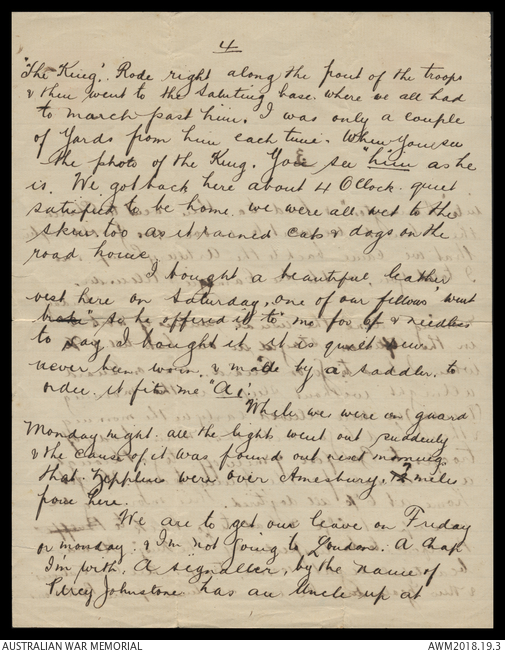 4
"The King". Rode right along the front of the troops
& then went to the saluting base. where we all had
to march past him. I was only a couple
of Yards from him each time. When you see
the photo of the King. You see "him as he
is. We got back here about 4 OClock. quiet
satisfied to be home. we were all wet to the
skin too as it rained cats & dogs on the
road home.
I bought a beautiful leather
vest here on Saturday, one of our fellows' went
so he offered it to" me for & needless
to say I bought it. It is quiet new
never been worn. & made by a saddler. to
order. it fits me "A1".
While we were on guard
Monday night. all the lights went out suddenly
& the cause of it was found out next morning.
that Zepplins were over Amesbury. miles
from here.
We are to get our leave on Friday
or monday. & I'm not going to London. A chap
I'm with. A signaller, by the name of
Percy Johnstone has an Uncle up at
AUSTRALIAN WAR MEMORIAL
AWM2018.19.3